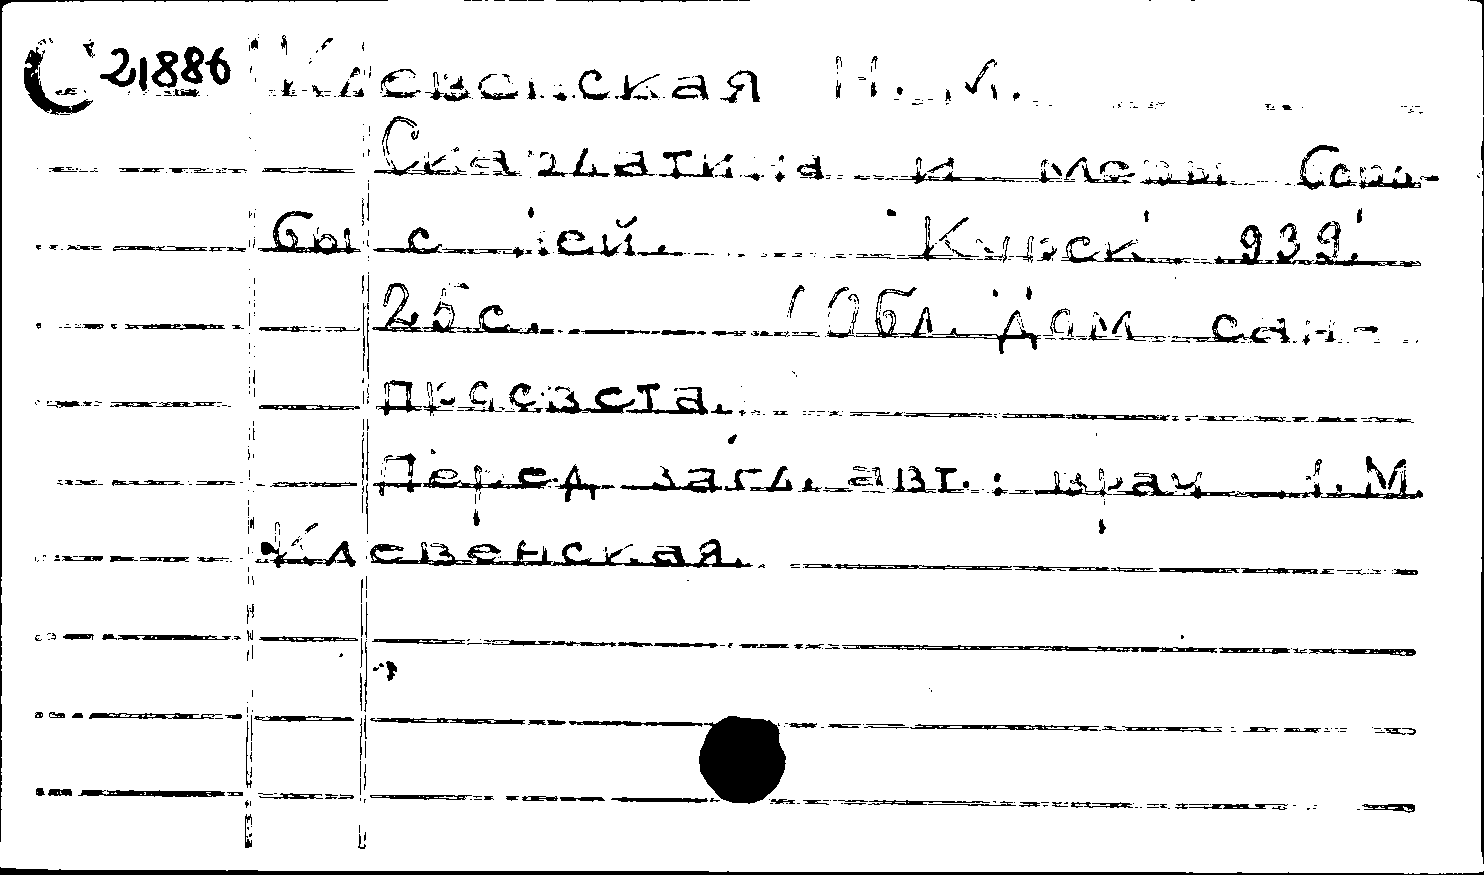 С 21886 Клевенская Н. М.
Скарлатина и меры борь-
бы с ней. Курск 939.
25 с. (Обл. дом сан-
просвета.
Перед загл. авт.: врач Н. М.
Клевенская.